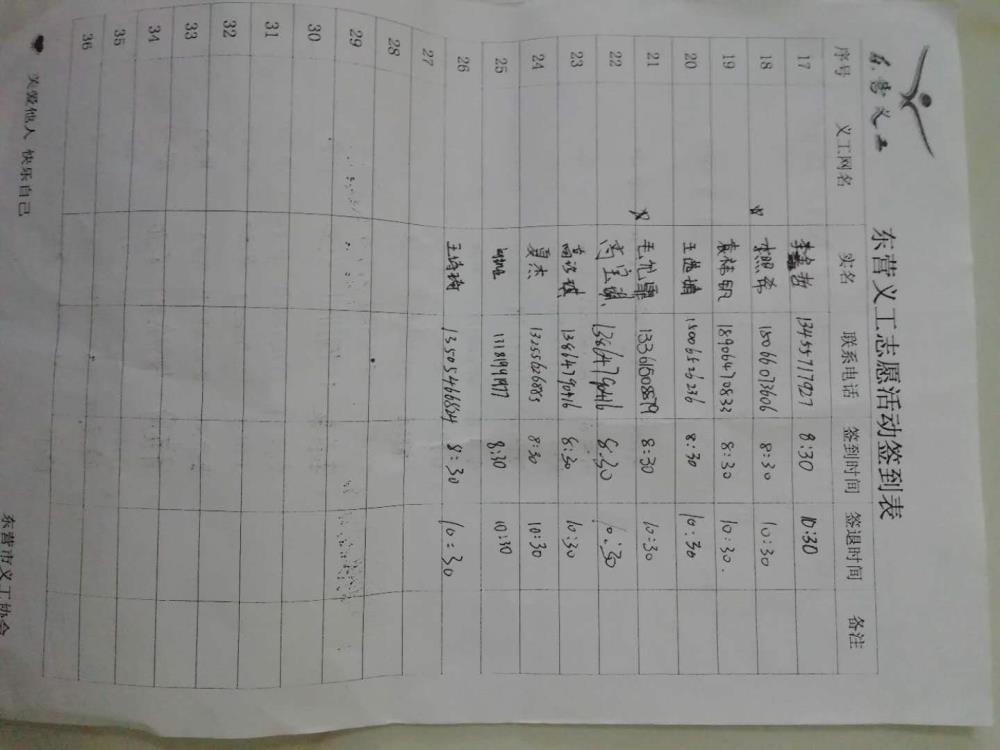 东营义工
东营义工志愿活动签到表
序号 义工网名 实名 联系电话 签到时间 签退时间 备注
17 13455717927 8:30 10:30
18 李熙希 15066073606 8:30 10:30
19 袁林明 18906470833 8:30 10:30.
20 18006526236 8:30 10:30
21 13361508879 8:30 10:30
22 13864790416 8:30 10:30
23 13864790416 8:30 10:30
24 夏杰 13255626883 8:30 10:30
25 13181991977 8:30 10:30
26 王琦琦 13505466824 8:30 10:30
27
28
29
30
31
32
33
34
35
36
关爱他人 快乐自己
东营市义工协会